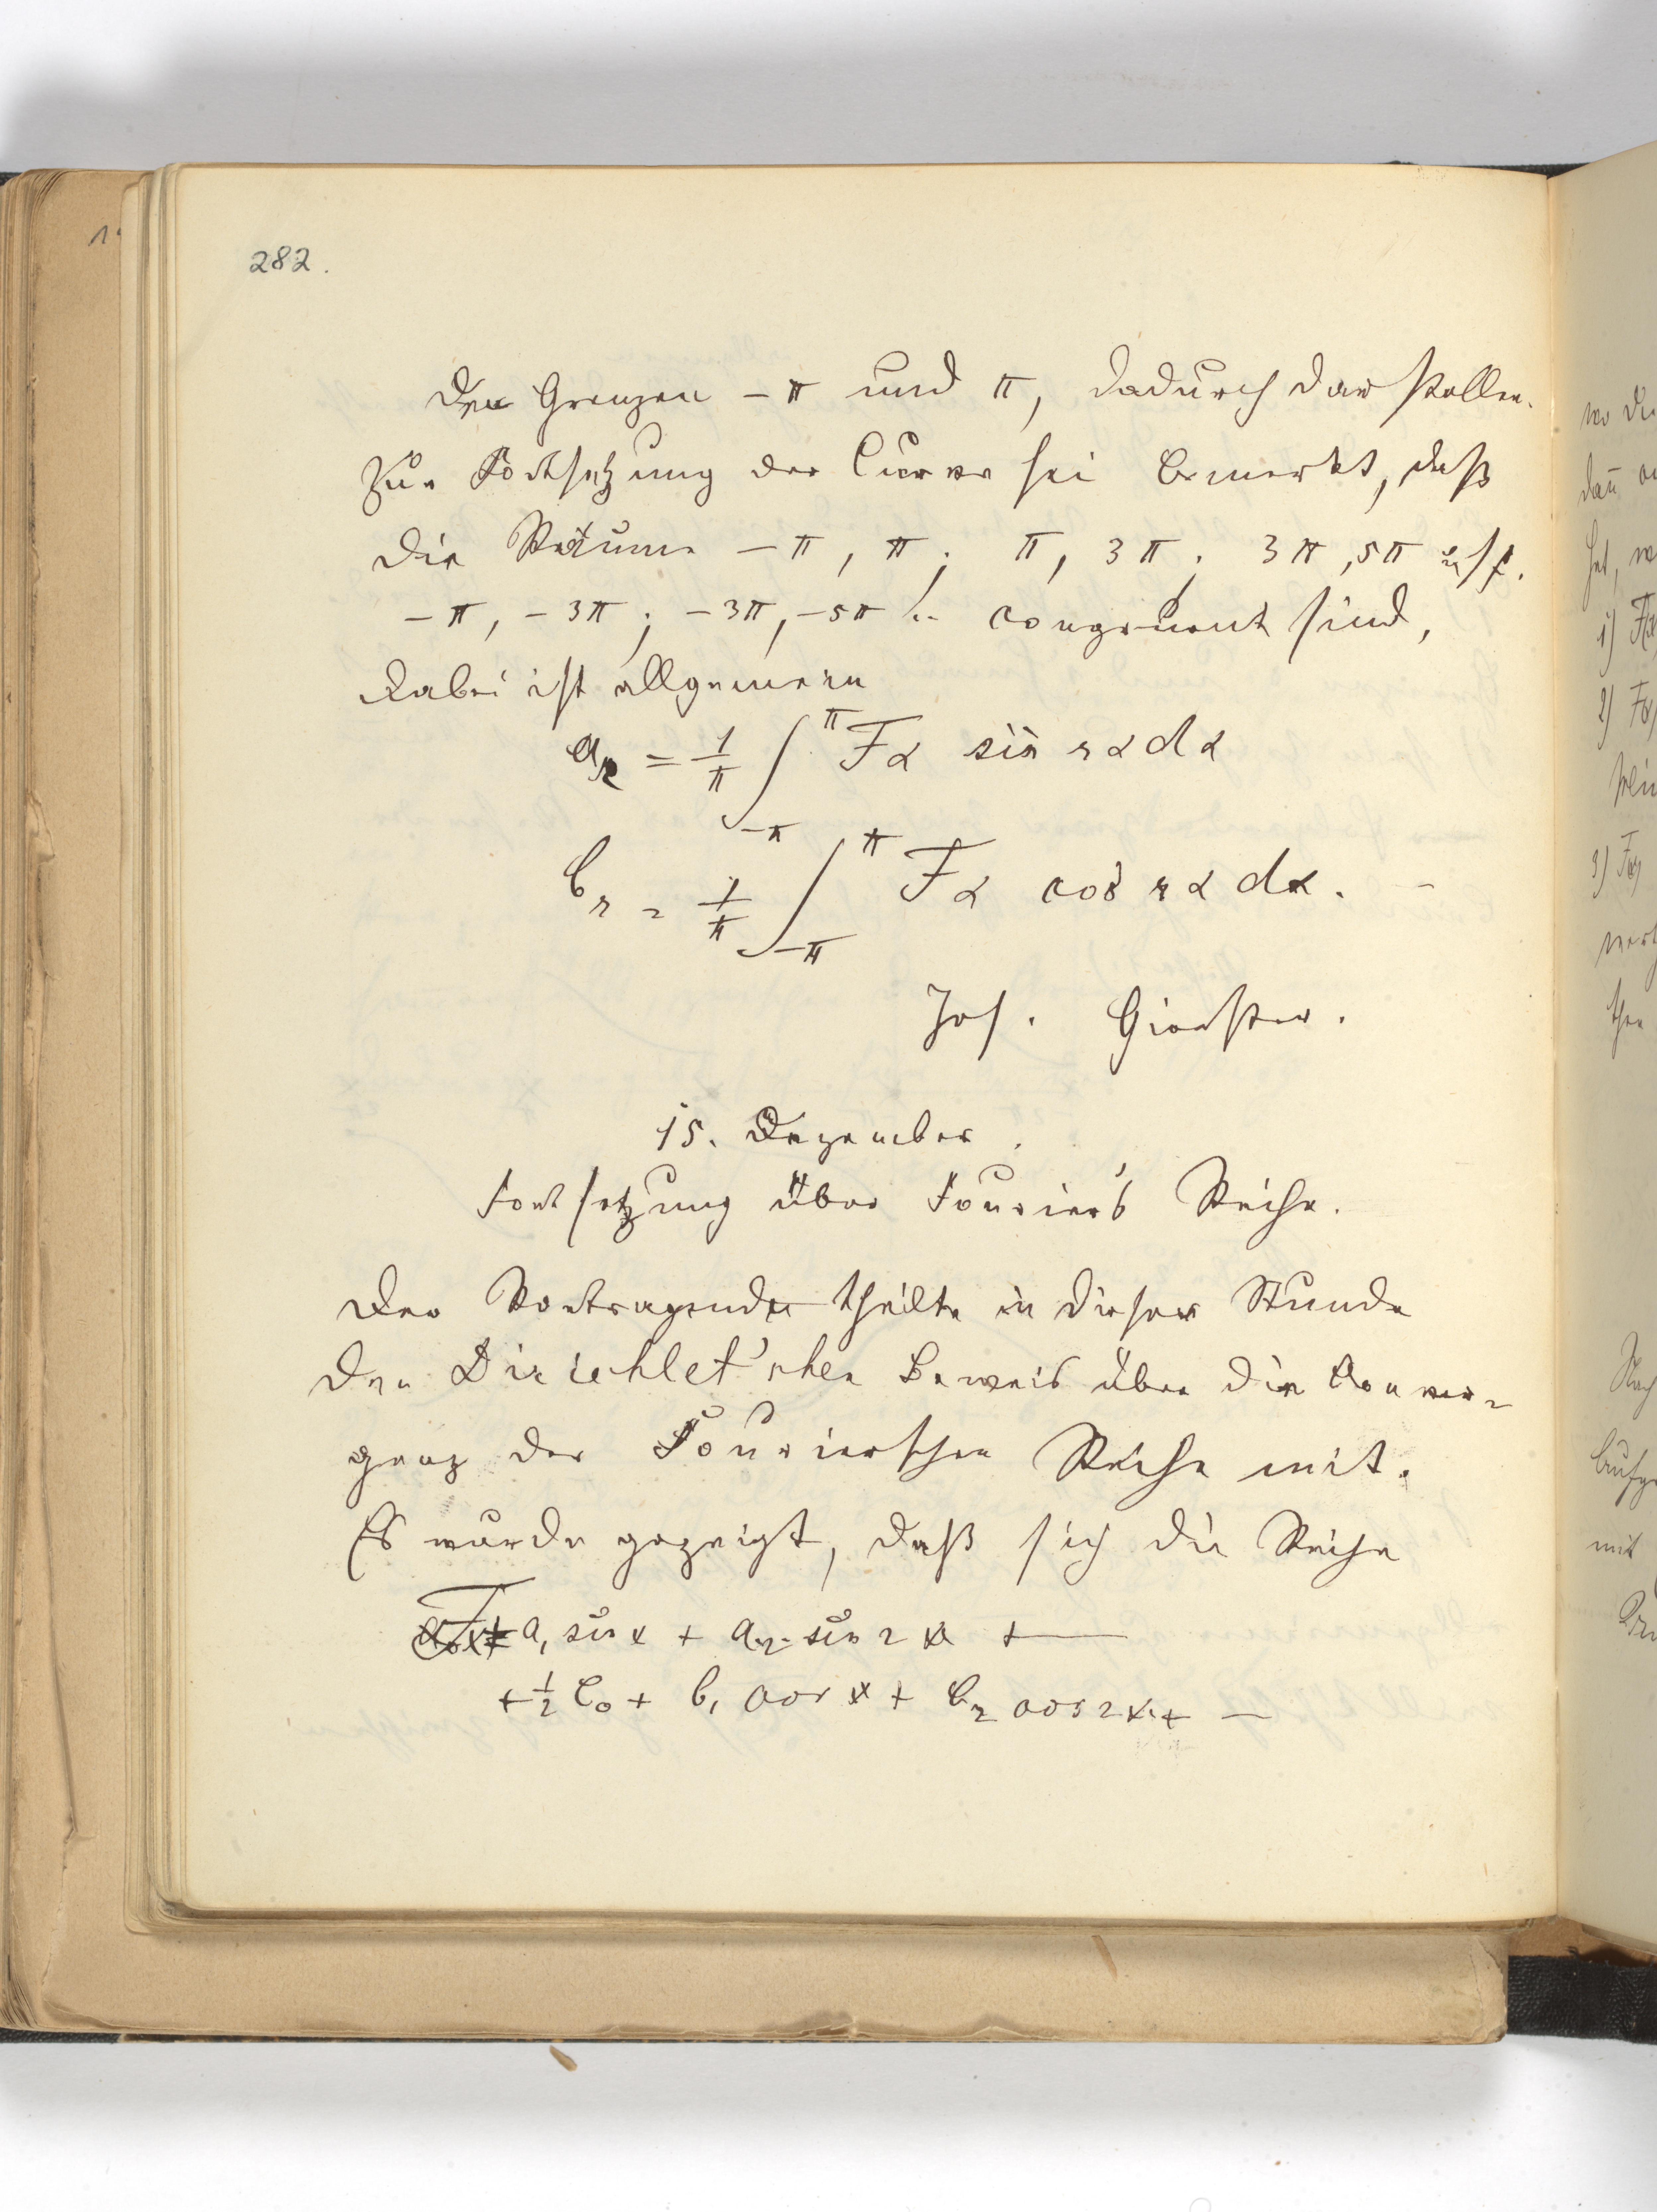 282.
den Grenzen - π und π, dadurch darstellen.
Zur Fortsetzung der Curve sei bemerkt, daß
die Räume - π, π; π, 3π; 3π, 5π usf.
- π, - 3π; - 3π, - 5π .. congruent sind,
dabei ist allgemein
a_r = 1/π ∫_{-π}^{π} Fα sin rα dα
b_r = 1/π ∫_{-π}^{π} Fα cos rα dα. -
Jos. Gierster.
15. Dezember.
Fortsetzung über Fourier's Reihe.
Der Vortragende theilte in dieser Stunde
den Dirichlet'schen Beweis über die Conver-
genz der Fourierschen Reihe mit.
Es wurde gezeigt, daß sich die Reihe
a₁ sin x + a₂ sin 2x + —
+ ½ b₀ + b₁ cos x + b₂ cos 2x + —